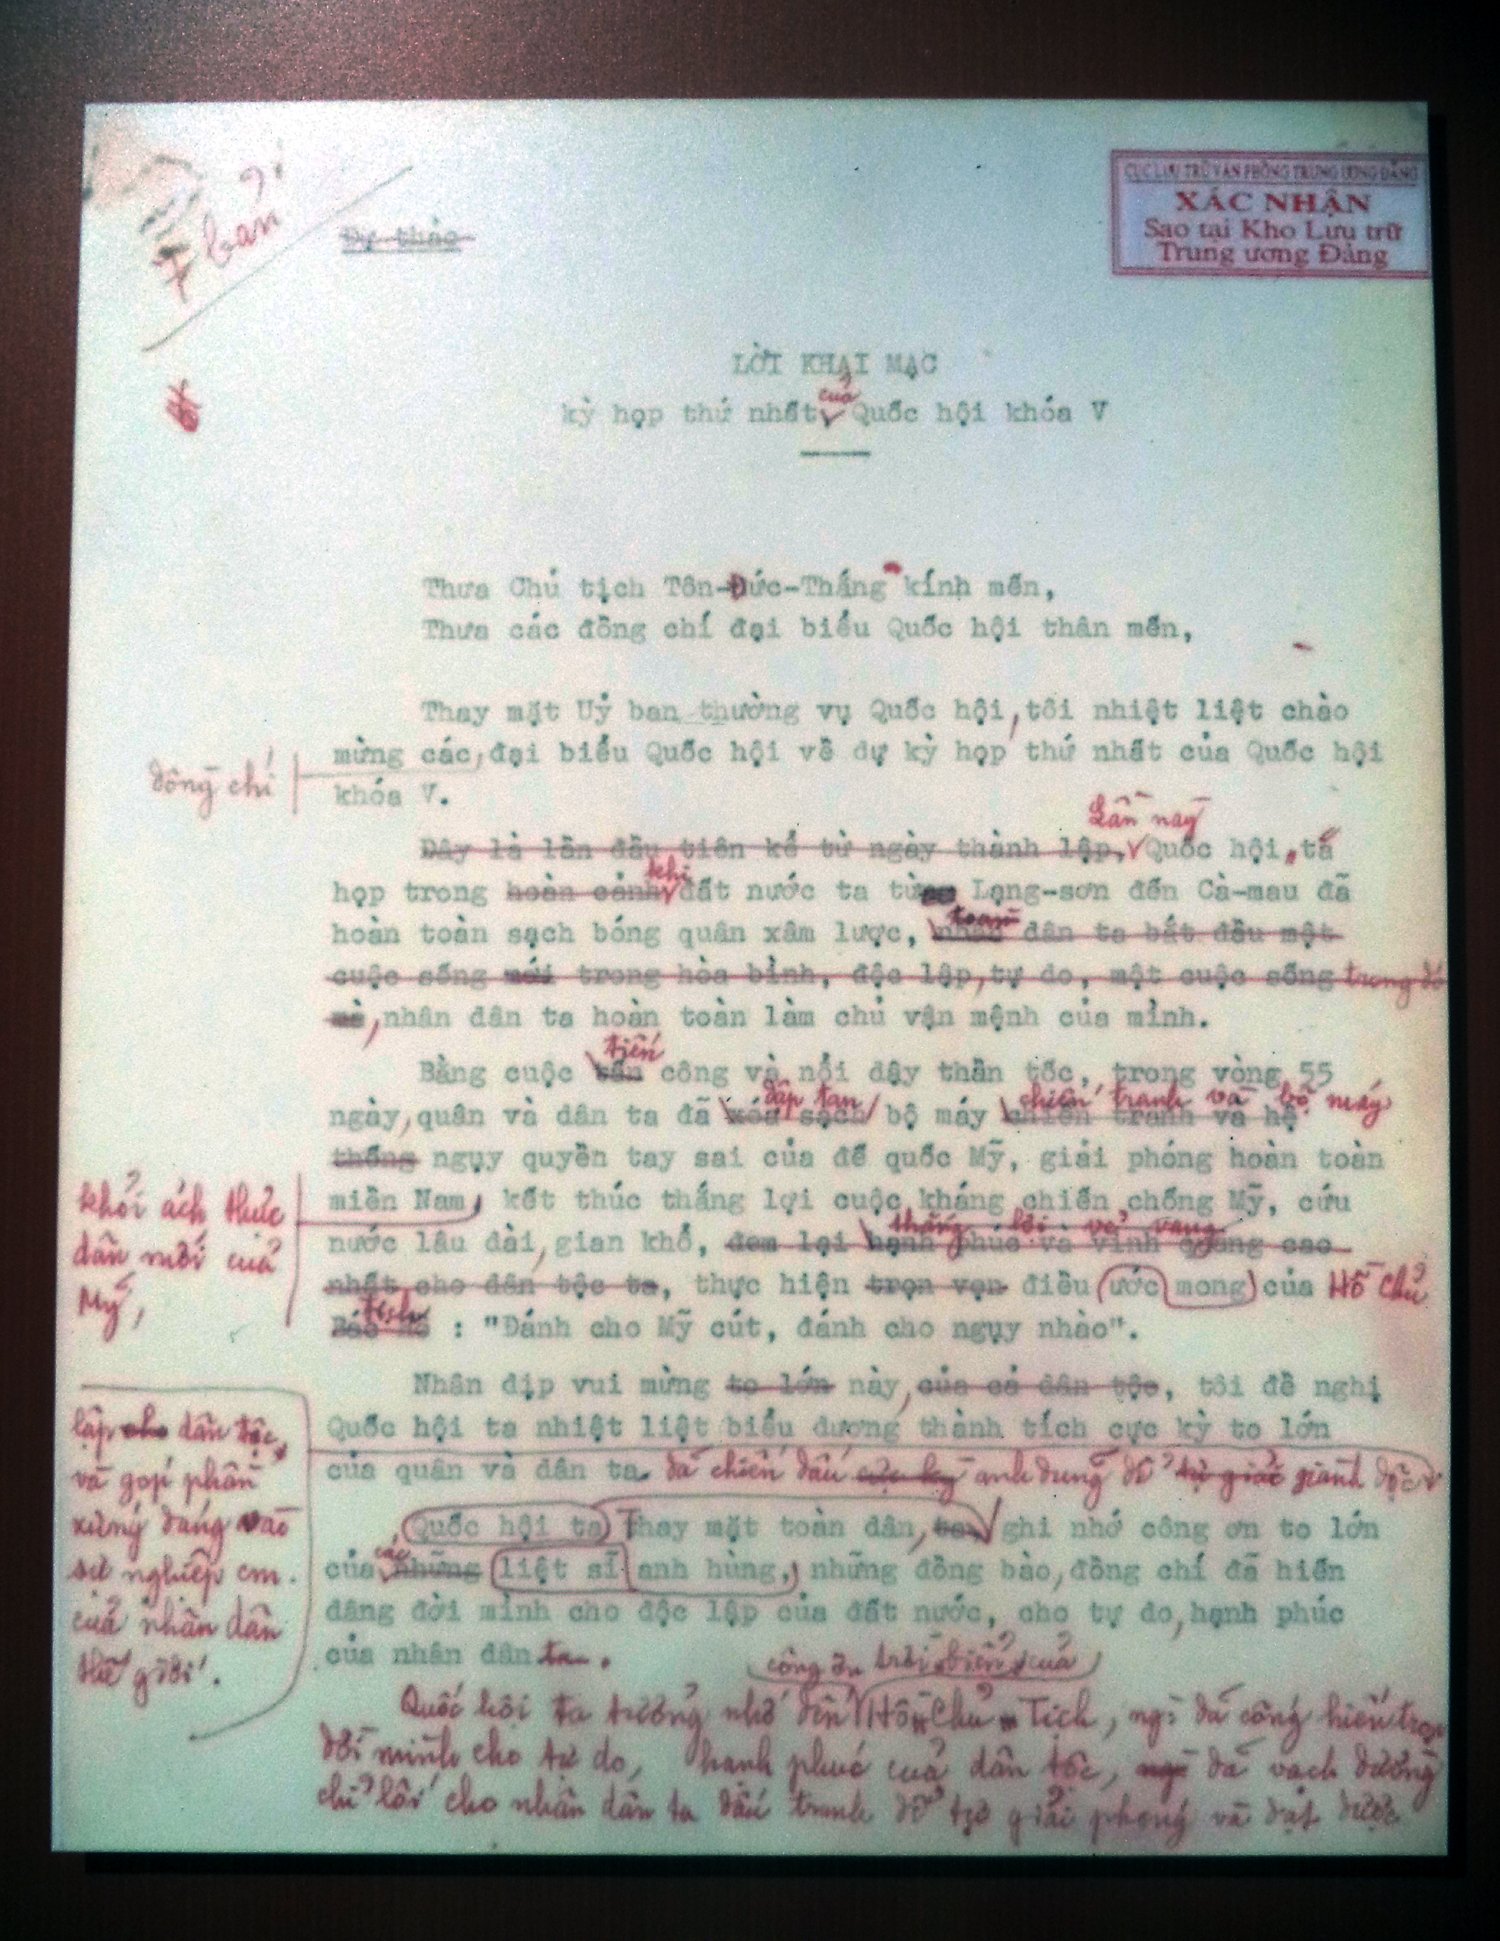 7 bản
Dự thảo
CỤC LƯU TRỮ VĂN PHÒNG TRUNG ƯƠNG ĐẢNG
XÁC NHẬN
Sao tại Kho Lưu trữ
Trung ương Đảng
LỜI KHAI MẠC
của
kỳ họp thứ nhất Quốc hội khóa V
Thưa Chủ tịch Tôn-Đức-Thắng kính mến,
Thưa các đồng chí đại biểu Quốc hội thân mến,
Thay mặt Uỷ ban thường vụ Quốc hội, tôi nhiệt liệt chào
mừng các, đại biểu Quốc hội về dự kỳ họp thứ nhất của Quốc hội
đồng chí
khóa V.
Lần này
Đây là lần đầu tiên kể từ ngày thành lập, Quốc hội ta
khi
họp trong hoàn cảnh đất nước ta từ Lạng-sơn đến Cà-mau đã
toàn
hoàn toàn sạch bóng quân xâm lược, nhân dân ta bắt đầu một
cuộc sống mới trong hòa bình, độc lập, tự do, một cuộc sống trong đó
mà, nhân dân ta hoàn toàn làm chủ vận mệnh của mình.
tiến
Bằng cuộc tấn công và nổi dậy thần tốc, trong vòng 55
đập tan chiến tranh và bộ máy
ngày, quân và dân ta đã xóa sạch bộ máy chiến tranh và hệ
thống ngụy quyền tay sai của đế quốc Mỹ, giải phóng hoàn toàn
miền Nam, kết thúc thắng lợi cuộc kháng chiến chống Mỹ, cứu
khỏi ách thực
dân mới của
Mỹ,
thắng lợi vẻ vang
nước lâu dài, gian khổ, đem lại hạnh phúc và vinh quang cao
nhất cho dân tộc ta, thực hiện trọn vẹn điều ước mong của Hồ Chủ
tịch
Bác Hồ : "Đánh cho Mỹ cút, đánh cho ngụy nhào".
Nhân dịp vui mừng to lớn này, của cả dân tộc, tôi đề nghị
Quốc hội ta nhiệt liệt biểu dương thành tích cực kỳ to lớn
của quân và dân ta. đã chiến đấu cực kỳ anh dũng để tự giải giành độc
lập cho dân tộc,
và góp phần
xứng đáng vào
sự nghiệp cm.
của nhân dân
thế giới.
Quốc hội ta Thay mặt toàn dân, ta ghi nhớ công ơn to lớn
các
của những liệt sĩ anh hùng, những đồng bào, đồng chí đã hiến
dâng đời mình cho độc lập của đất nước, cho tự do, hạnh phúc
của nhân dân ta.
công ơn trời biển của
Quốc hội ta tưởng nhớ đến Hồ Chủ Tịch, ng` đã cống hiến trọn
đời mình cho tự do, hạnh phúc của dân tộc, ng` đã vạch đường
chỉ lối cho nhân dân ta đấu tranh để tự giải phóng và đạt được